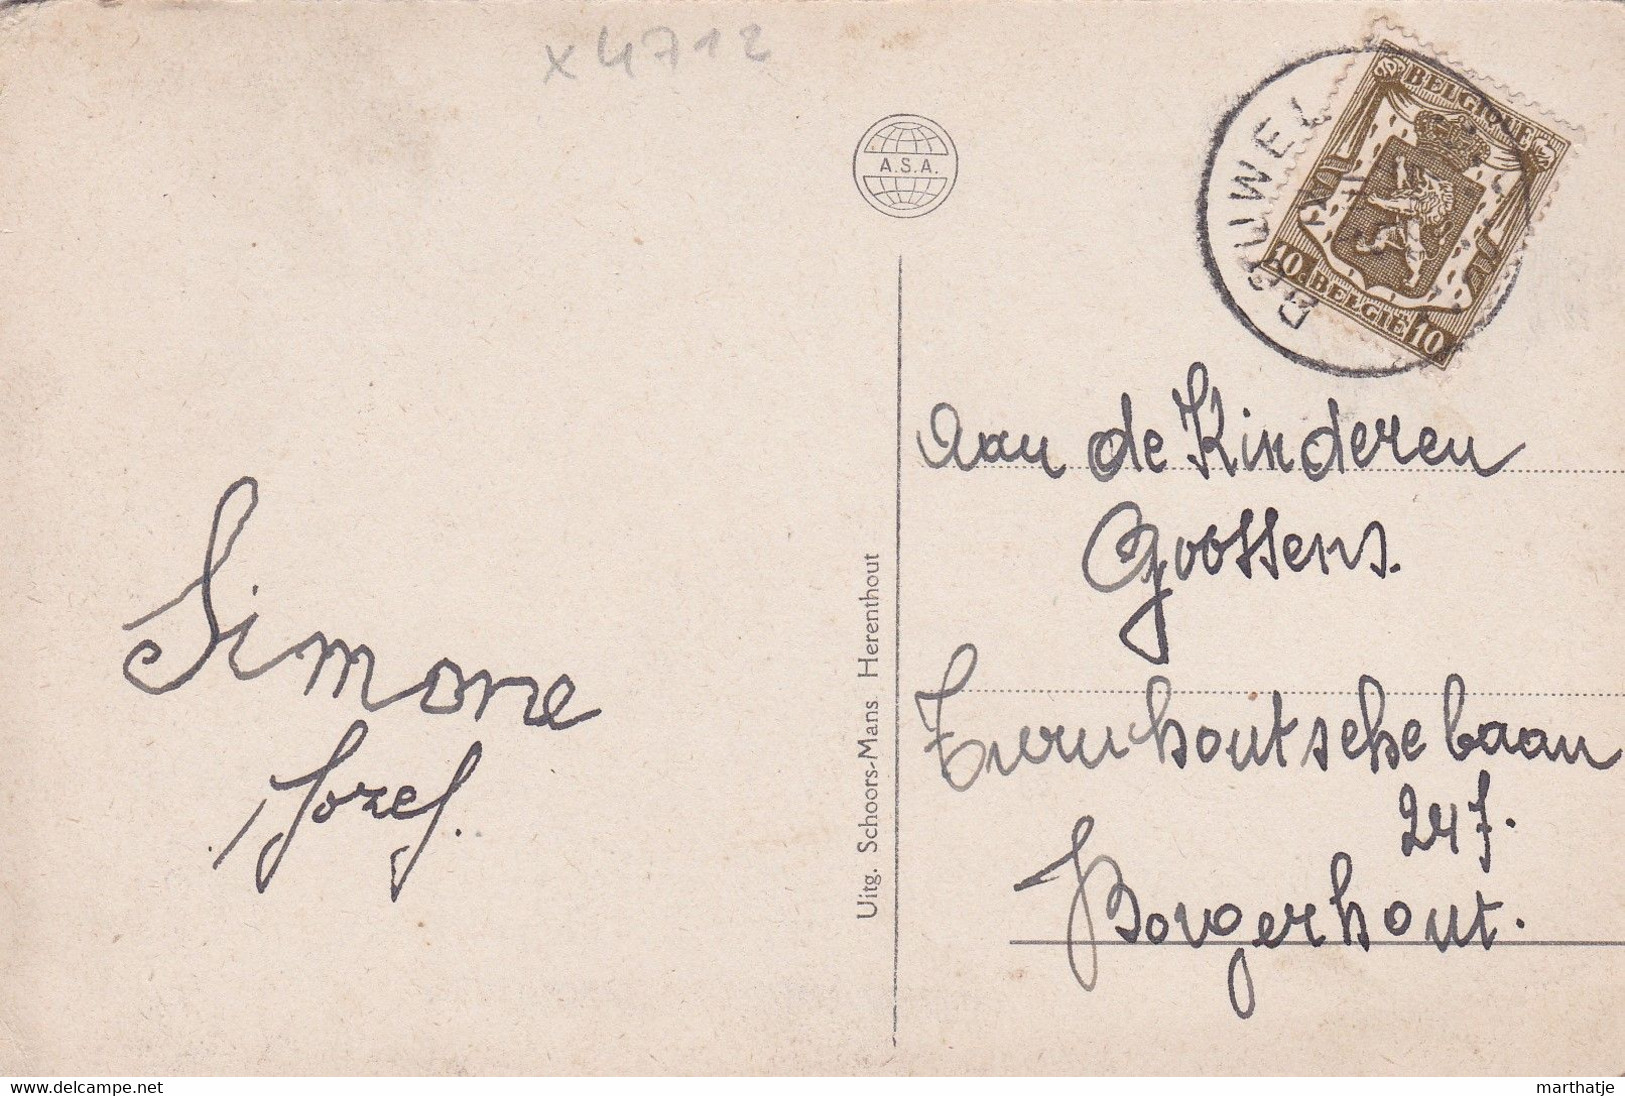 x 4712
A.S.A.
BOUWEL
BELGIQUE
10c BELGIË 10
Simone
Jozef.
Uitg. Schoors-Mans Herenthout
Aan de Kinderen
Goossens.
Turnhoutschebaan
247.
Borgerhout.
www.delcampe.net
marthatje